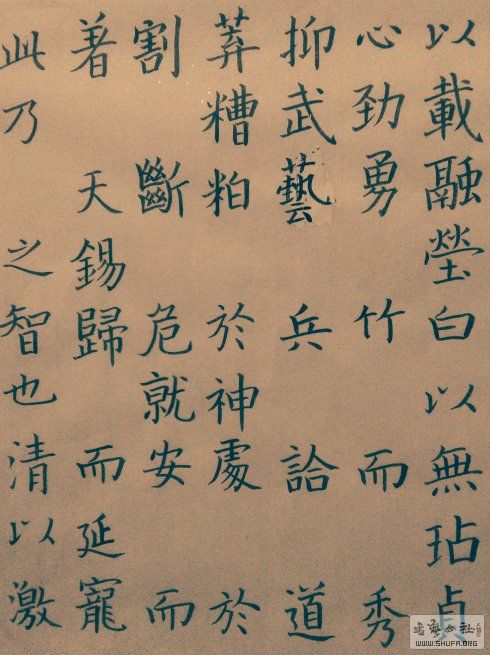 以載融瑩白以無玷貞
心勁勇竹而秀
抑武藝兵詥道
葬糟粕於神處於
割斷危就安而
着天錫歸而延寵
此乃之智也清以激
WWW.SHUFA.ORG